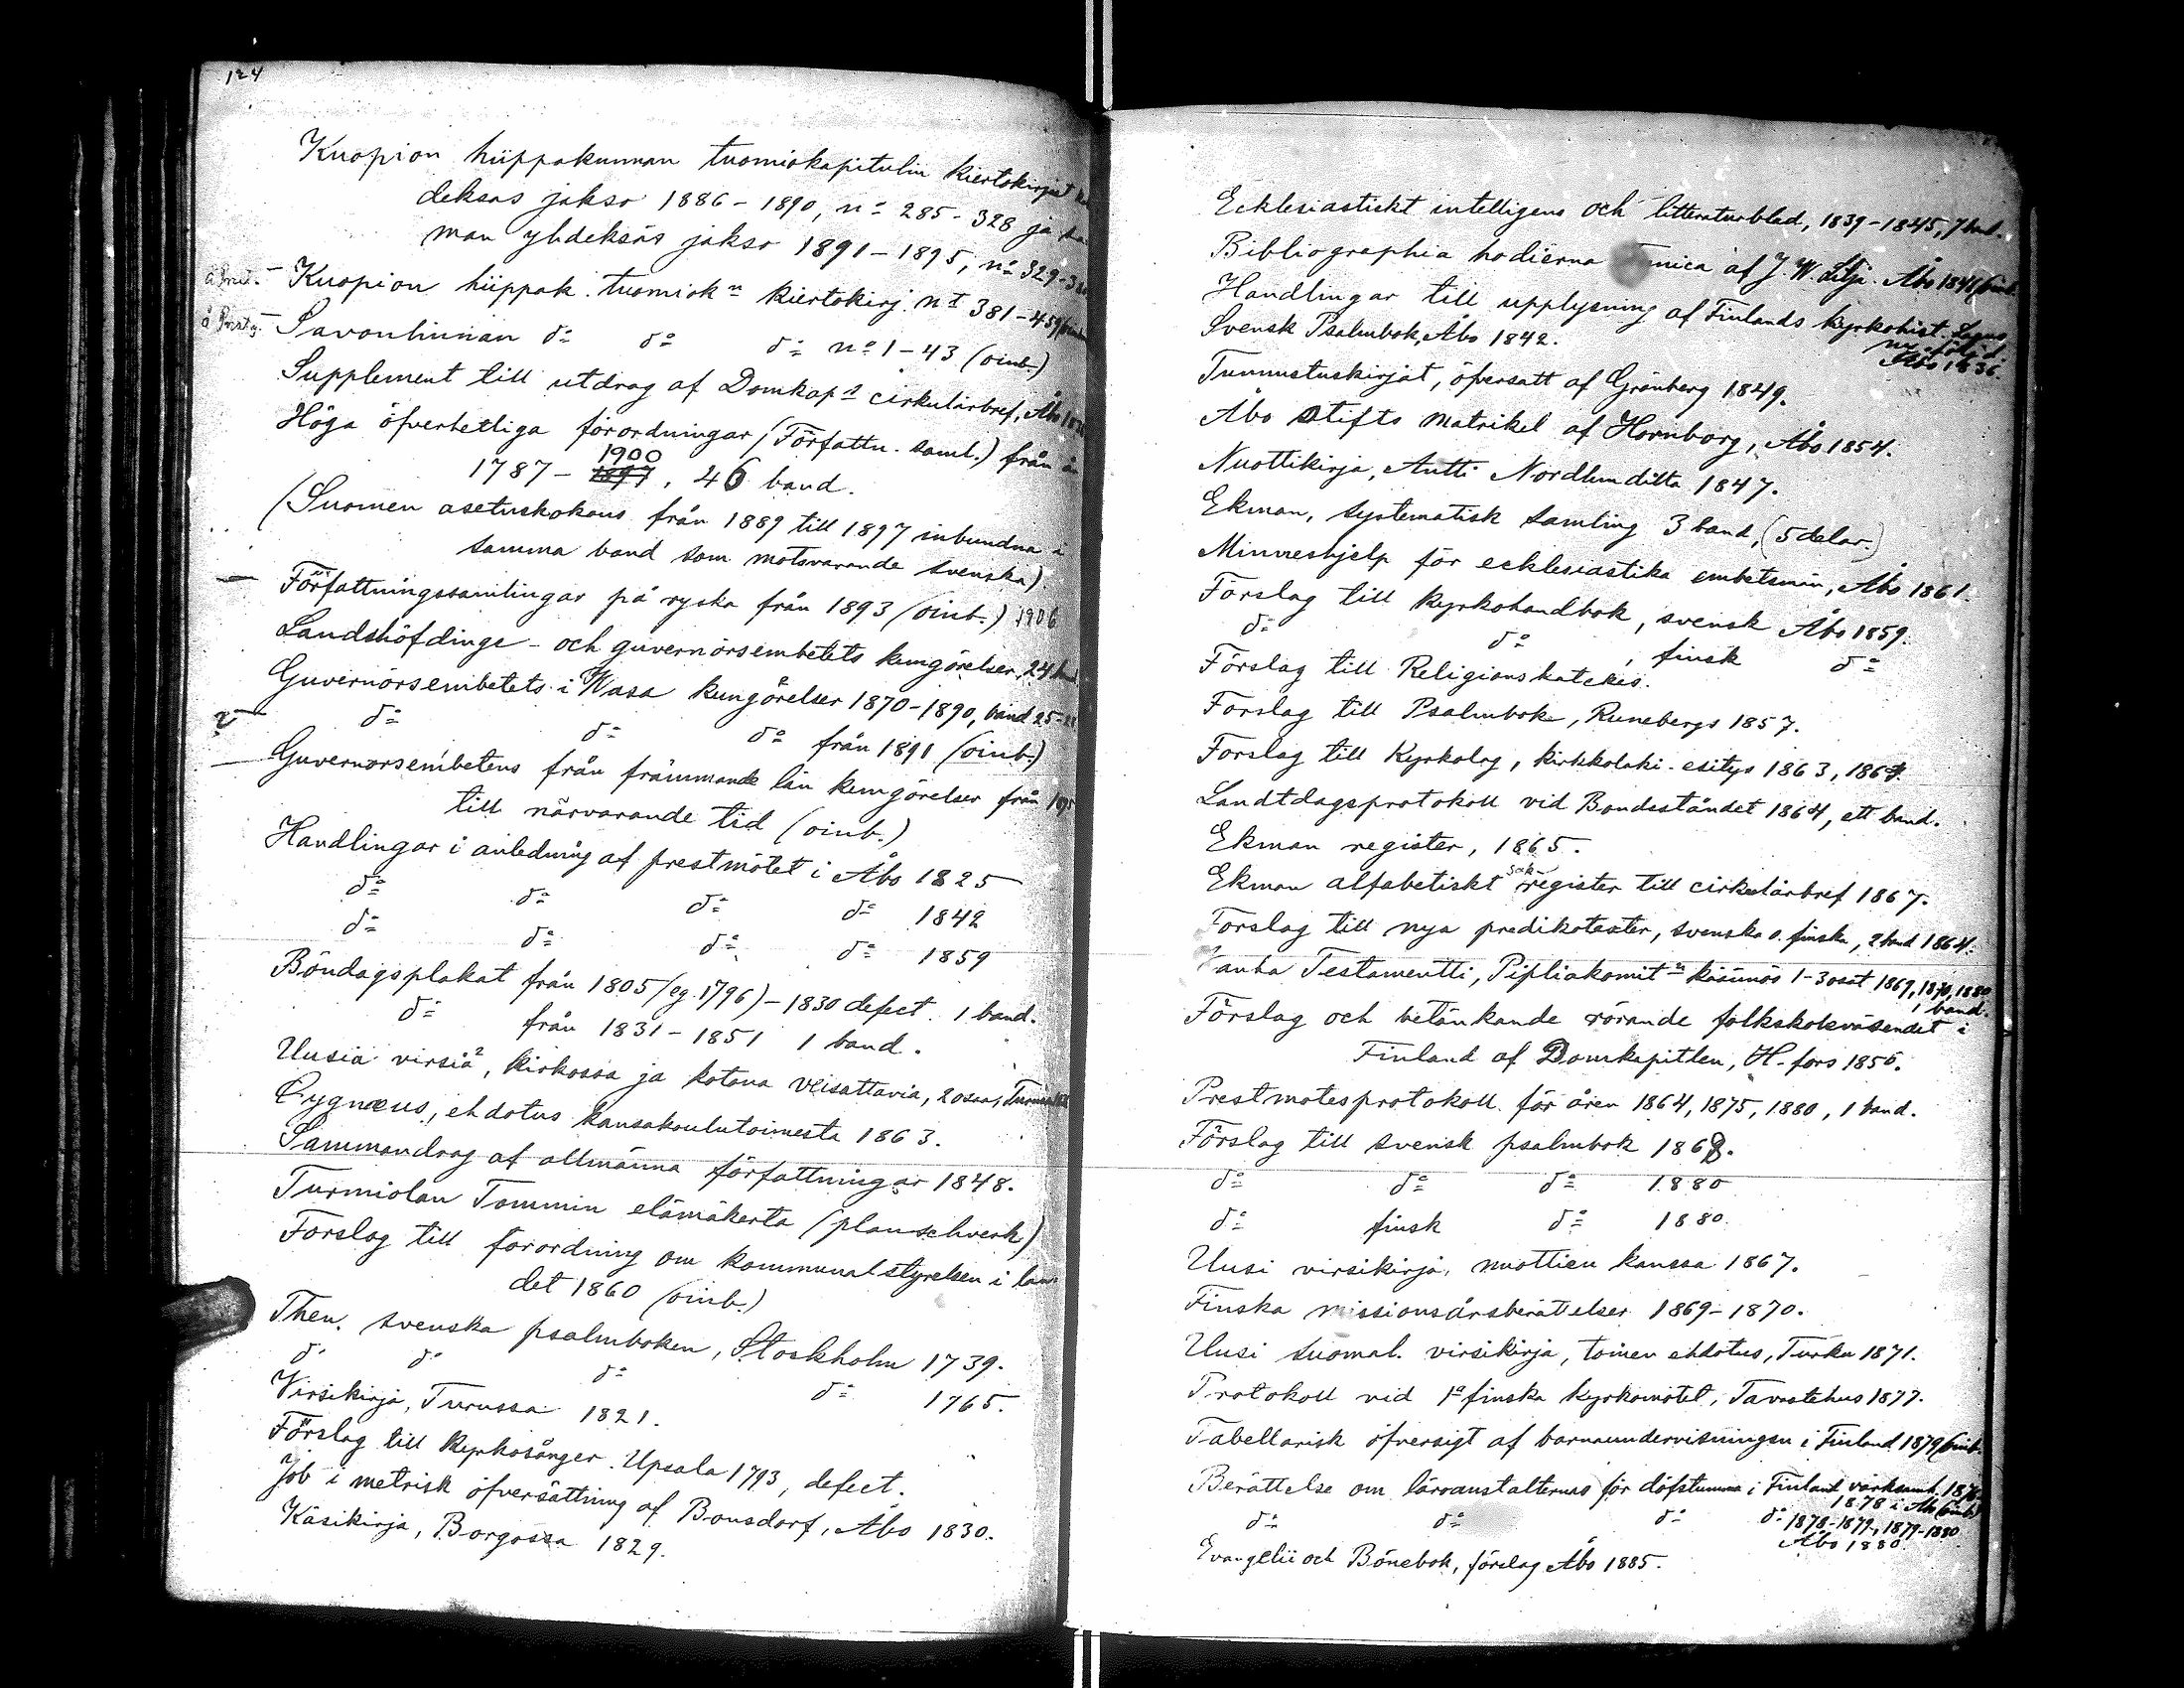 124
Kuopion hiippakunnan tuomiokapitulin kiertokirjat
deksas jakso 1886-1890, no 285-328 ja
man yhdeksäs jakso 1891-1895, no 329-
Kuopion hiippak. tuomiokn kiertokirj. no 381-459
Savonlinnan do do do no 1-43 (oinb.)
Supplement till utdrag af Domkaps cirkulärbref, Åbo
Höga öfverhetliga förordningar (Författn. saml.) från
1900
1787-1897, 46 band.
(Suomen asetuskokous från 1889 till 1897 inbundna i
samma band som motsvarande svenska)
Författningssamlingar på ryska från 1893 (oinb.) 1906
Landshöfdinge- och guvernörsembetets kungörelser, 24
Guvernörsembetets i Wasa kungörelser 1870-1890, band 25-
do do do från 1891 (oinb.)
Guvernörsembetens från främmande län kungörelser från
till närvarande tid (oinb.)
Handlingar i anledning af prestmötet i Åbo 1825
do do do do 1842
do do do do 1859
Böndagsplakat från 1805 (eg. 1796)-1830 defect. 1 band.
do från 1831-1851 1 band.
Uusia virsiä, kirkossa ja kotona veisattavia, 2 osaa,
Cygnæus, ehdotus kansakoulutoimesta 1863.
Sammandrag af allmänna författningar 1848.
Turmiolan Tommin elämäkerta (planschverk)
Förslag till förordning om kommunalstyrelsen i lan
det 1860 (oinb.)
Then svenska psalmboken, Stockholm 1739.
do do do do 1765.
Virsikirja, Turussa 1821.
Förslag till kyrkosånger. Upsala 1793, defect.
Job i metrisk öfversättning af Bonsdorf, Åbo 1830.
Käsikirja, Borgossa 1829.
Ecklesiastiskt intelligens och litteraturblad, 1839-1845, 7 band.
Bibliographia hodierna af J. W. Lilja. Åbo
Handlingar till upplysning af Finlands kyrkohist.
ny följd.
Åbo 1836.
Svensk Psalmbok, Åbo 1842.
Tunnustuskirjat, öfversatt af Grönberg 1849.
Åbo stifts matrikel af Hornborg, Åbo 1854.
Nuottikirja, Antti Nordlundilta 1847.
Ekman, systematisk samling 3 band, (5 delar.)
Minneshjelp för ecklesiastika embetsmän, Åbo 1861.
Förslag till kyrkohandbok, svensk Åbo 1859.
do do, finsk do
Förslag till Religionskatekes.
Förslag till Psalmbok, Runebergs 1857.
Förslag till Kyrkolag, kirkkolaki-esitys 1863, 1867.
Landtdagsprotokoll vid Bondeståndet 1864, ett band.
Ekman register, 1865.
Ekman alfabetiskt sakregister till cirkulärbref 1867.
Förslag till nya predikotexter, svenska o. finska, 2 band 1864.
Vanha Testamentti, Pipliakomitn käännös 1-3 osat 1869, 1870, 1880
1 band.
Förslag och betänkande rörande folkskolväsendet i
Finland af Domkapitlen, H-fors 1856.
Prestmötesprotokoll för åren 1864, 1875, 1880, 1 band.
Förslag till svensk psalmbok 1868.
do do do 1880
do finsk do 1880.
Uusi virsikirja, nuottien kanssa 1867.
Finska missionsårsberättelser 1869-1870.
Uusi suomal. virsikirja, toinen ehdotus, Turku 1871.
Protokoll vid 1a finska kyrkomötet, Tavastehus 1877.
Tabellarisk öfversigt af barnaundervisningen i Finland 1879 (oinb.
Berättelse om läroanstalternas för döfstumma i Finland värksamh.
1878 i Åbo (oinb.)
do do do do 1878-1879, 1879-1880
Åbo 1880.
Evangelii och Bönebok, förslag Åbo 1885.